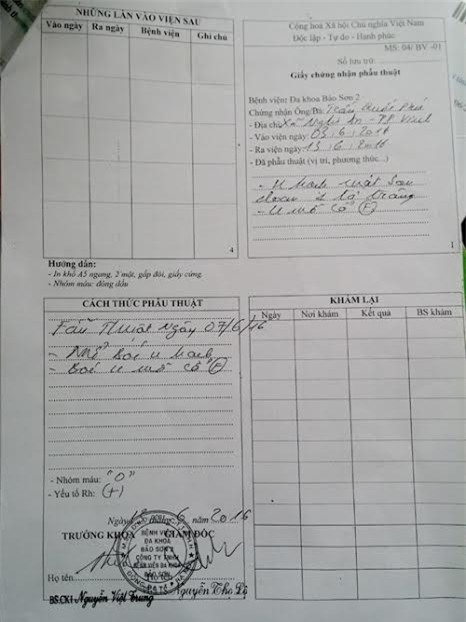 NHỮNG LẦN VÀO VIỆN SAU
Vào ngày Ra ngày Bệnh viện Ghi chú
4
Cộng hoà Xã hội Chủ nghĩa Việt Nam
Độc lập - Tự do - Hạnh phúc
MS: 04/ BV -01
Số lưu trữ:
Giấy chứng nhận phẫu thuật
Bệnh viện: Đa khoa Bảo Sơn 2
Chứng nhận Ông/Bà: Trần Quốc Phú
- Địa chỉ: Xã Nghi Ân - TP Vinh
- Vào viện ngày: 03, 6, 2016
- Ra viện ngày: 13, 6, 2016
- Đã phẫu thuật (vị trí, phương thức...)
- U
- U mỡ cổ (P)
1
Hướng dẫn:
- In khổ A5 ngang, 2 mặt, gấp đôi, giấy cứng.
- Nhóm máu: đóng dấu
CÁCH THỨC PHẪU THUẬT
Fẫu Thuật ngày 07/6/16
- Mổ bóc u
- Bóc u mỡ cổ (P)
- Nhóm máu: "O"
- Yếu tố Rh: (+)
Ngày 13 tháng 6 năm 2016
TRƯỞNG KHOA GIÁM ĐỐC
BỆNH VIỆN
ĐA KHOA
BẢO SƠN 2
CÔNG TY TNHH
BỆNH VIỆN ĐA KHOA
BẢO SƠN
Họ tên
BS.CKI Nguyễn Việt Trung Nguyễn Thọ
KHÁM LẠI
Ngày Nơi khám Kết quả BS khám